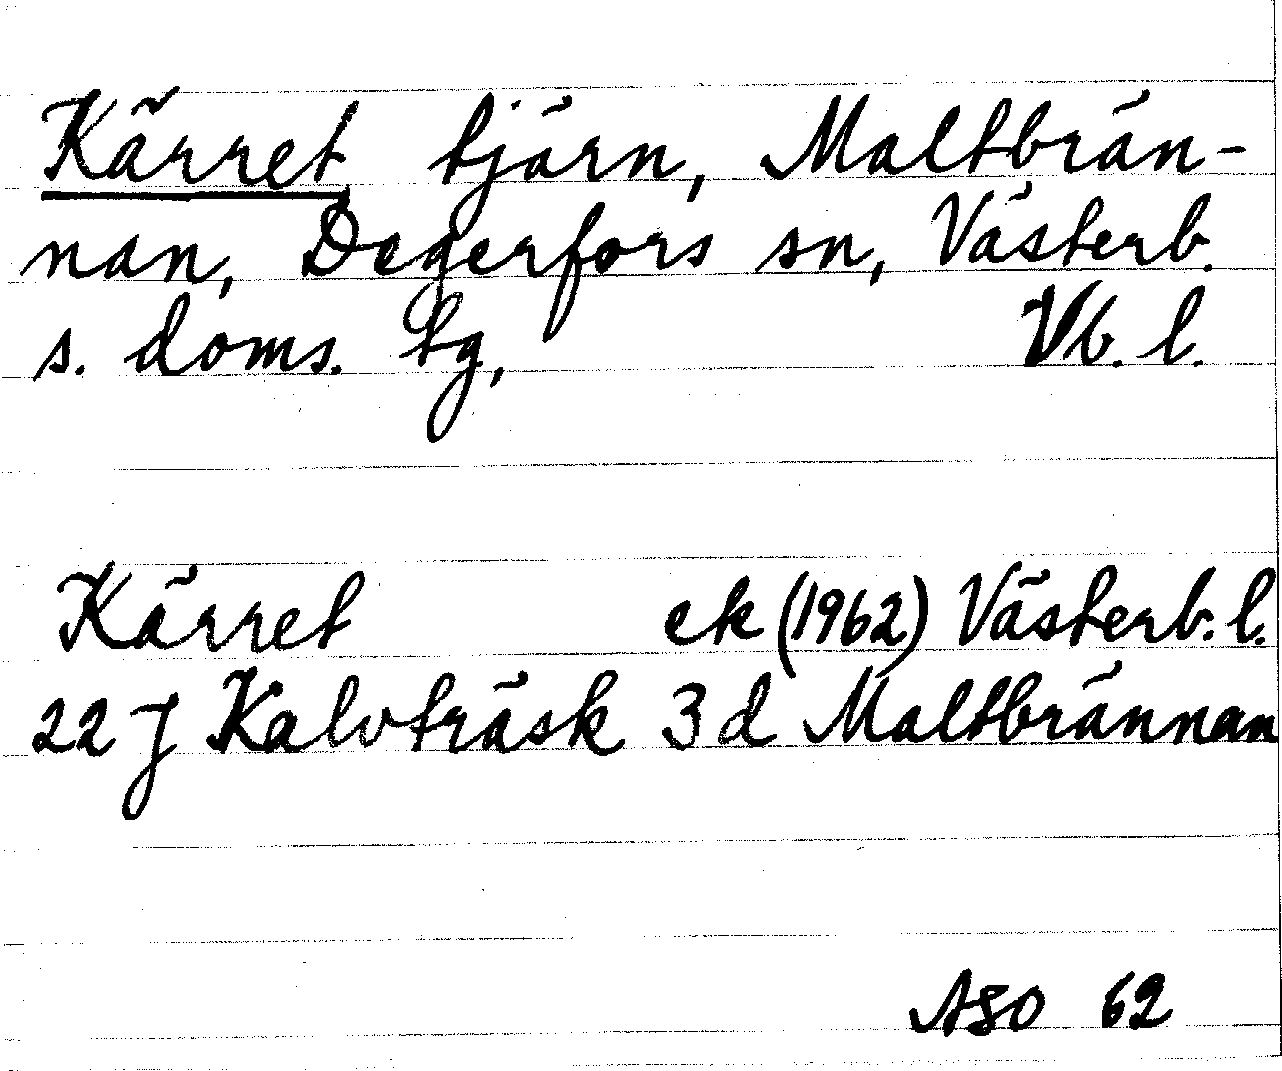 Kärret tjärn, Maltbrän-
nan, Degerfors sn, Västerb.
s. doms. tg, Vb. l.
Kärret ek (1962) Västerb. l.
22 J Kalvträsk 3 d Maltbrännan
ASO 62